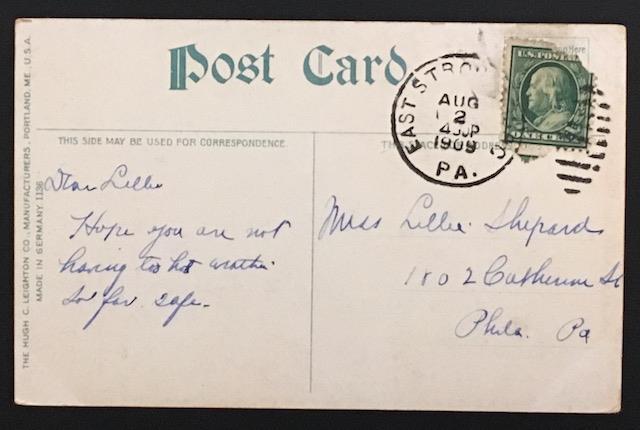 Post Card
THIS SIDE MAY BE USED FOR CORRESPONDENCE.
THE HUGH C. LEIGHTON CO., MANUFACTURERS, PORTLAND, ME., U.S.A.
MADE IN GERMANY 1136
EAST STRO
AUG
2
1909
PA.
U.S. POSTAGE
ONE CENT
Here
Dear Lillie
Hope you are not
having too hot weather
So far safe.
Miss Lillie Shepard
1802 Catherine St
Phila. Pa